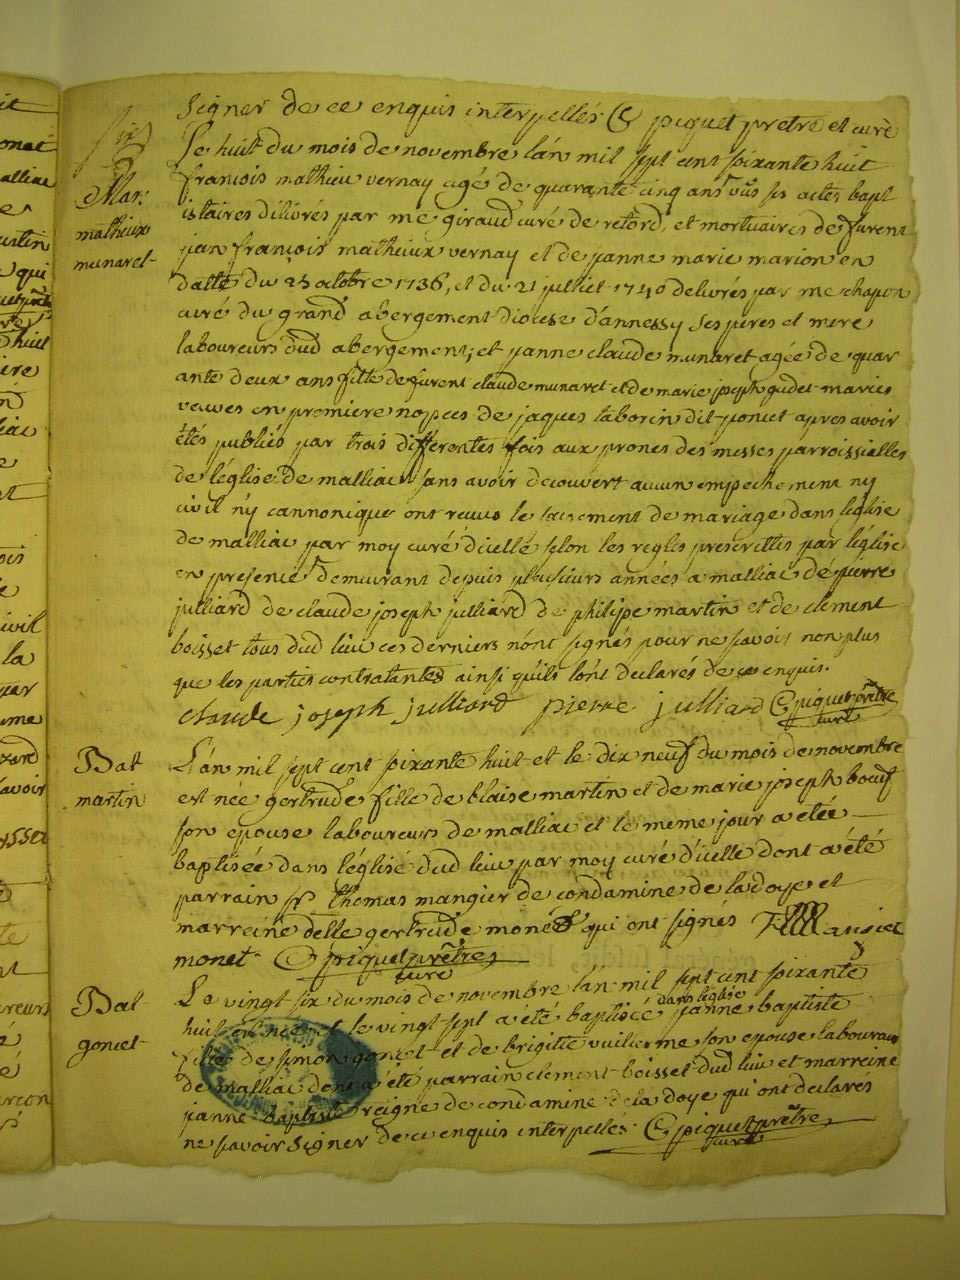 signer de ce enquis interpellés C piquet pretre et curé
Mar:
matheux
munaret
Le huit du mois de novembre l'an mil sept cent soixante huit
francois mathieu vernay agé de quarante cinq ans vûs ses actes bapt
istaires délivrés par me giraud curé de retord, et mortuaires de furent
jan françois matheux vernay et de janne marie marion en
datte du 23 octobre 1736, et du 21 julliet 1740 delivrés par me chapon
curé du grand abergement diocese d'annessy ses peres et mere
laboureurs dud abergement; et janne claude munaret agée de quar
ante deux ans fille de furent claude munaret et de marie joseph gudet mariés
veuves en premiere nopces de jaques taborin dit poncet apres avoir
étés publiés par trois differentes fois aux prones des messes parroissialles
de l'église de malliac sans avoir découvert aucun empechement ny
civil ny cannonique ont reçus le sacrement de mariage dans l'église
de malliac par moy curé d'icelle selon les regles prescrittes par l'église
en presence demeurant depuis plusieurs années a malliac de pierre
julliard de claude joseph julliard de philipe martin et de clement
boisset tous dud lieu ces derniers n'ont signés pour ne savoir non plus
que les parties contratantes ainsi qu'ils l'ont declarés de ce enquis.
claude joseph julliard pierre julliard C piquet prêtre
curé
Bat
martin
L'an mil sept cent soixante huit et le dix neuf du mois de novembre
est née gertrude fille de blaise martin et de marie joseph boeuf
son epouse laboureurs de malliac et le meme jour a étée
baptisée dans l'église dud lieu par moy curé d'icelle dont a été
parrain sr thomas mangier de condamine de la doye et
marreine delle gertrude monet qui ont signés
monet C piquet prêtre
curé
Bat
goncet
Le vingt six du mois de novembre l'an mil sept cent soixante
huit est née et le vingt sept a été baptisée dans l'église janne baptiste
fille de simon goncet et de brigitte vuillerme son epouse laboureurs
de malliac dont a été parrain clement boisset dud lieu et marreine
janne baptiste reigne de condamine de la doye qui ont declarés
ne savoir signer de ce enquis interpellés C piquet prêtre
curé